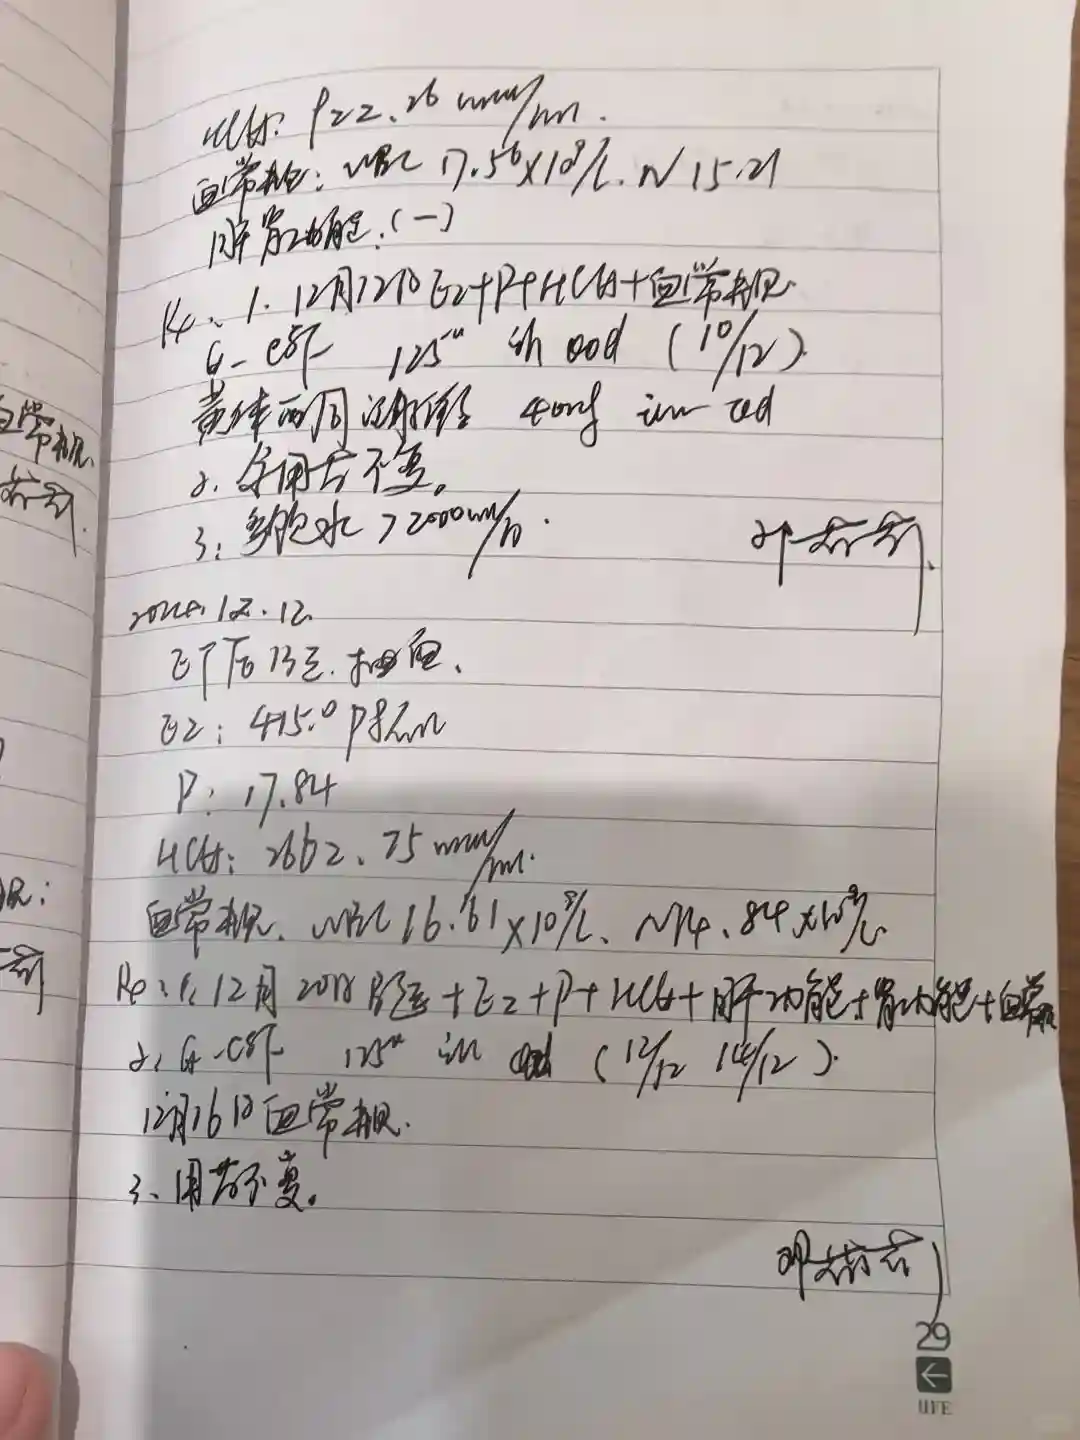 HCG: 922.26 mmu/ml.
血常规: WBC 17.56×10^9/L. N 15.21
肝肾功能.(一)
Rp、1. 12月12日E2+P+HCG+血常规.
G-CSF 125u ih qod (10/12).
黄体酮注射液 40mg im qd
2. 余用药不变。
3. 多饮水 >2000ml/日.
2024.12.12
ET后13天.抽血.
E2: 415.0 pg/ml
P: 17.84
HCG: 2662.75 mmu/ml.
血常规. WBC 16.61×10^9/L. N 14.84×10^9/L
Rp:1. 12月20日B超+E2+P+HCG+肝功能+肾功能+血常规
2. G-CSF 125u ih qod (12/12 14/12).
12月16日血常规.
3、用药不变。
29
LIFE
血常规.